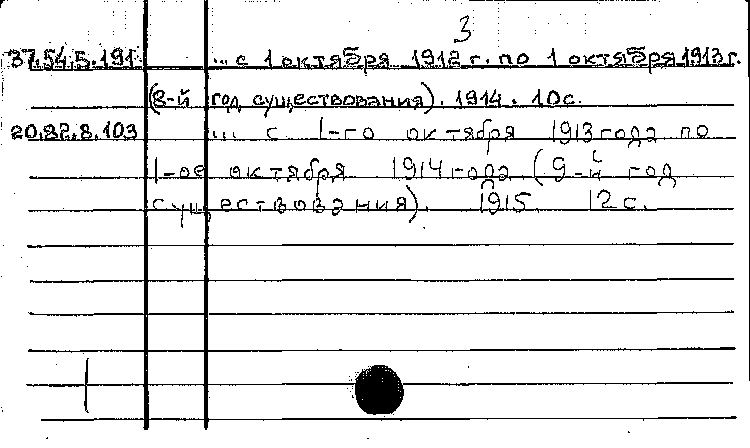 3
37.54.5.191 ... с 1 октября 1912 г. по 1 октября 1913 г.
(8-й год существования). 1914. 10 с.
20.82.8.103 ... с 1-го октября 1913 года по
1-ое октября 1914 года (9-й год
существования). 1915. 12 с.